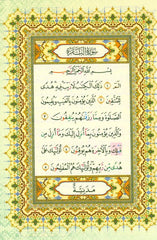 سُورَةُ الْبَقَرَةِ
بِسْمِ اللَّهِ الرَّحْمَٰنِ الرَّحِيمِ
الٓمٓ ۝ ذَٰلِكَ الْكِتَابُ لَا رَيْبَ فِيهِ هُدًى
لِّلْمُتَّقِينَ ۝ الَّذِينَ يُؤْمِنُونَ بِالْغَيْبِ وَيُقِيمُونَ
الصَّلَوٰةَ وَمِمَّا رَزَقْنَاهُمْ يُنفِقُونَ ۝
وَالَّذِينَ يُؤْمِنُونَ بِمَا أُنزِلَ إِلَيْكَ وَمَا أُنزِلَ مِن
قَبْلِكَ وَبِالْآخِرَةِ هُمْ يُوقِنُونَ ۝ أُولَٰئِكَ عَلَىٰ
هُدًى مِّن رَّبِّهِمْ وَأُولَٰئِكَ هُمُ الْمُفْلِحُونَ ۝
مدنية